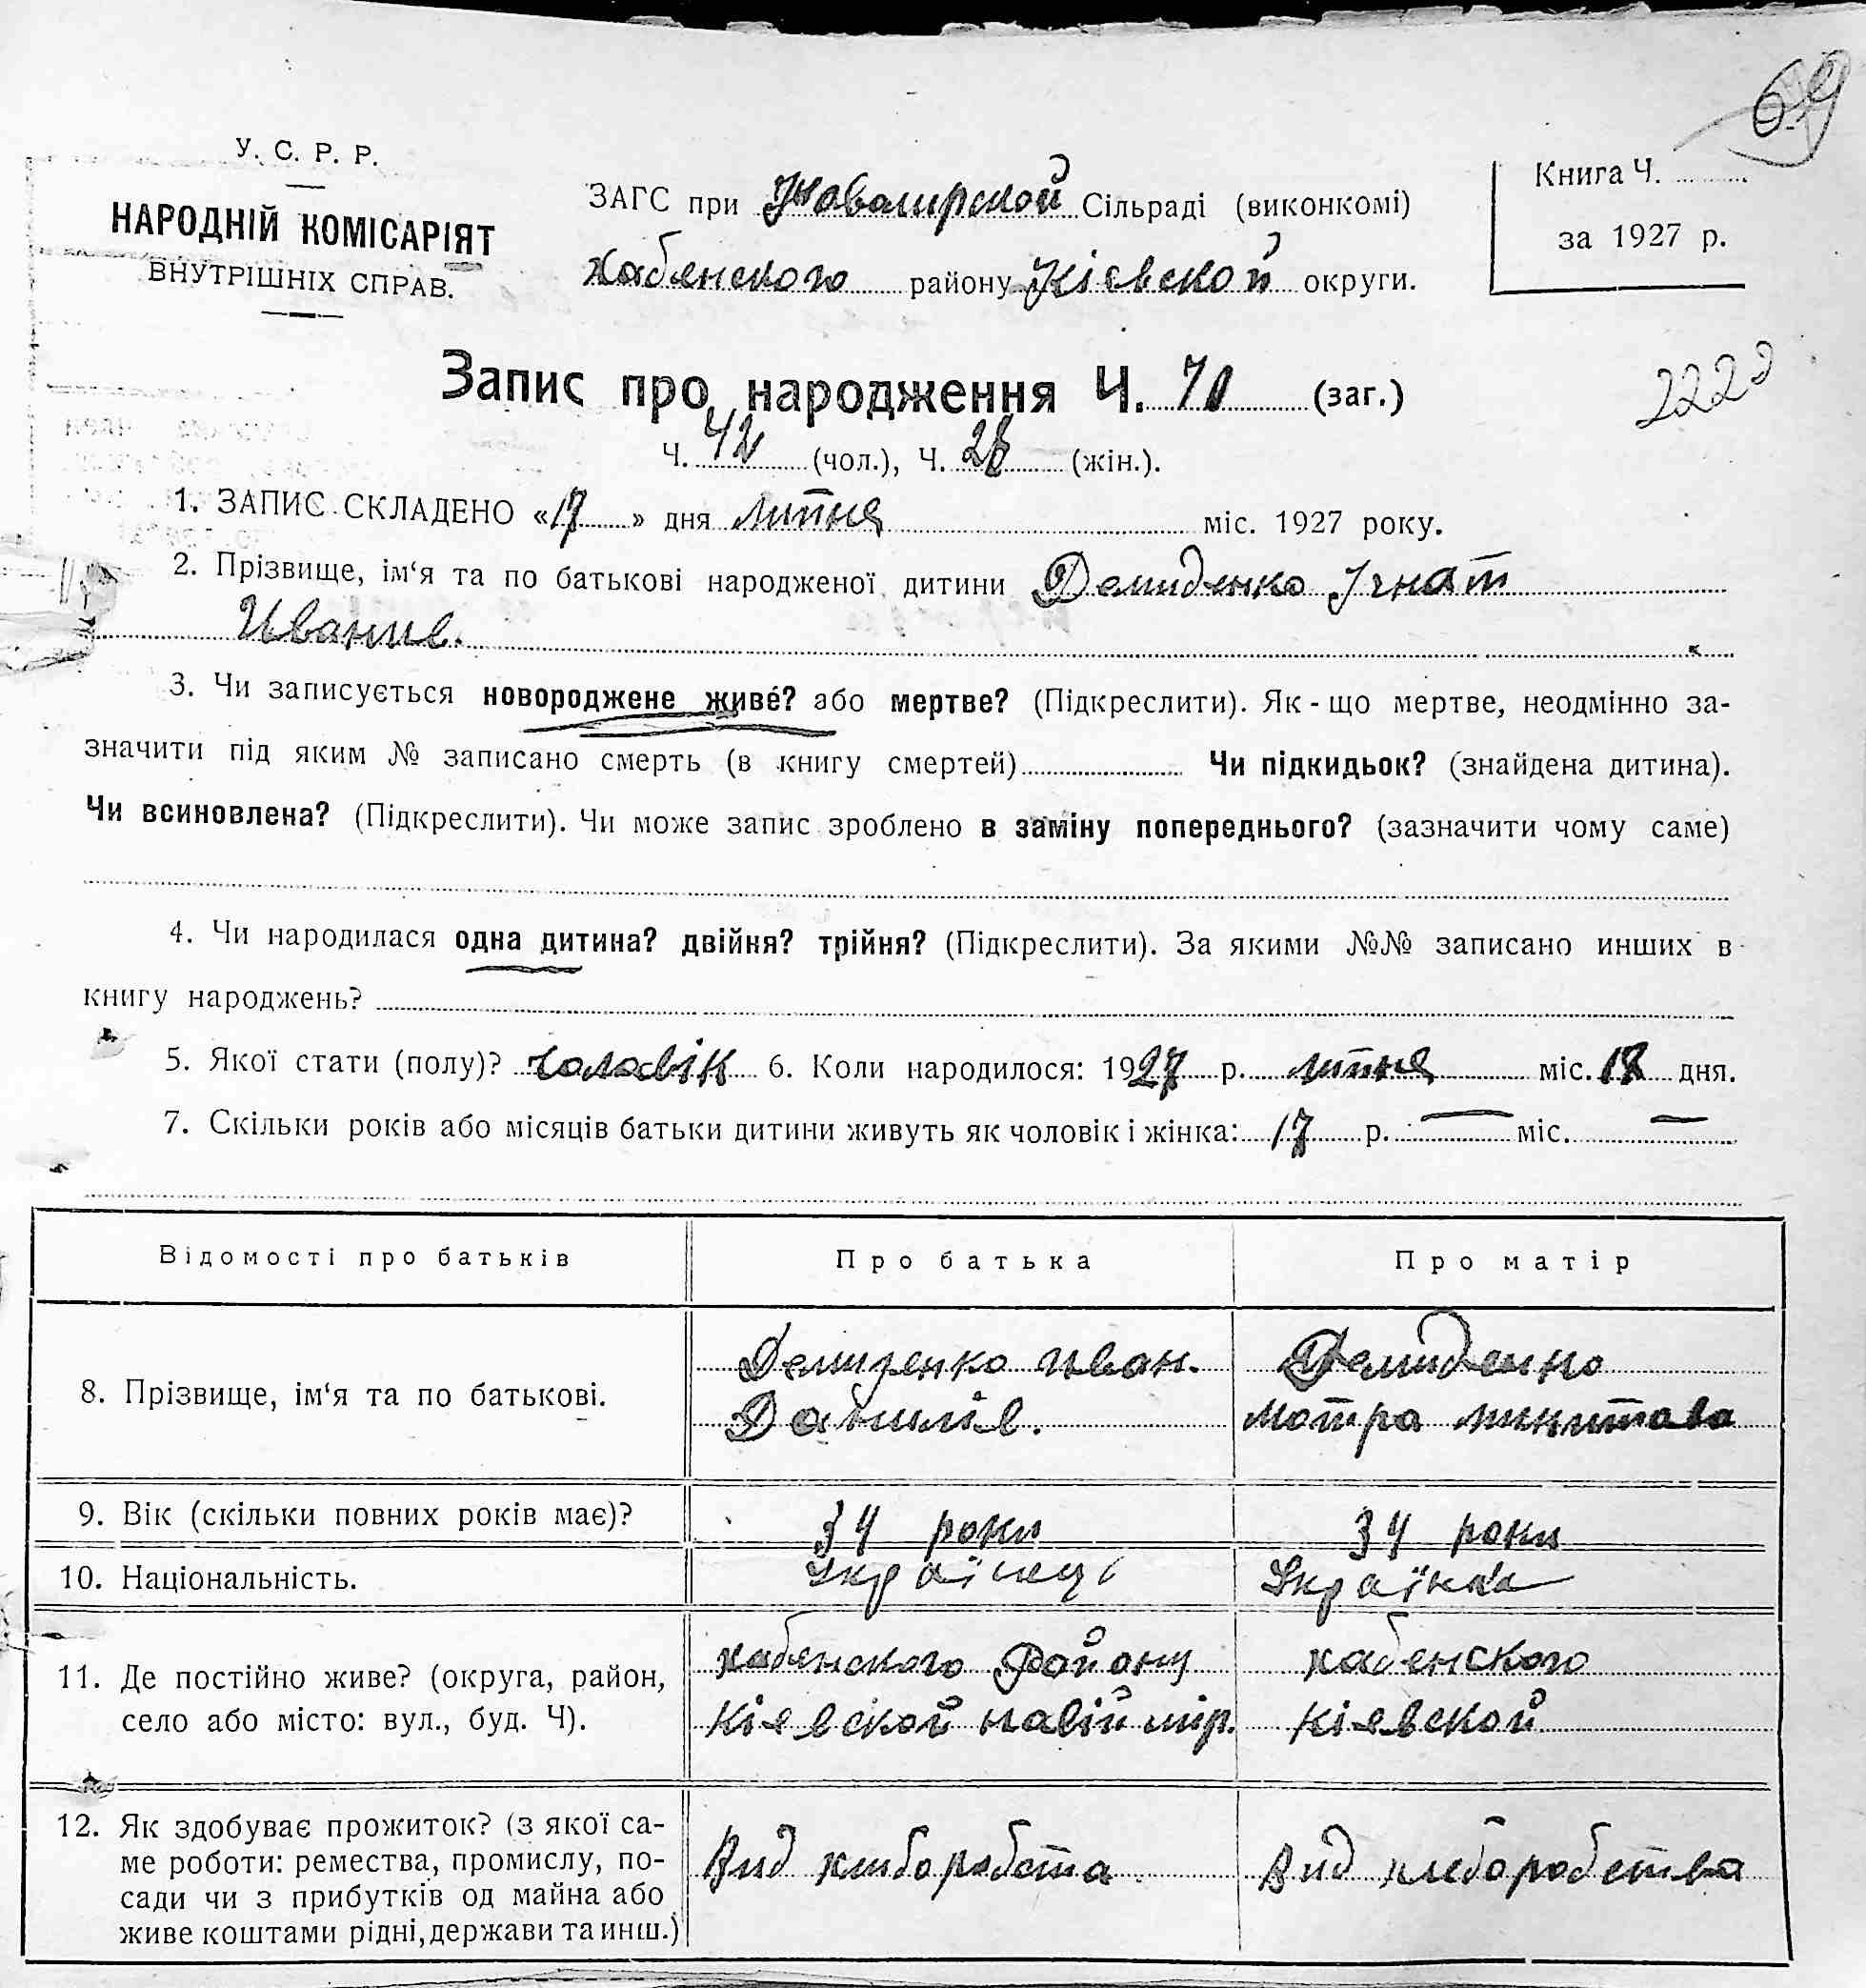 69
У. С. Р. Р.
НАРОДНІЙ КОМІСАРІЯТ
ВНУТРІШНІХ СПРАВ.
ЗАГС при Новамирской Сільраді (виконкомі)
Хабенского району Кіевской округи.
Книга Ч.
за 1927 р.
Запис про народження Ч. 70 (заг.)
222
Ч. 42 (чол.), Ч. 28 (жін.).
1. ЗАПИС СКЛАДЕНО «17» дня липня міс. 1927 року.
2. Прізвище, ім‘я та по батькові народженої дитини Демиденко Ігнат
Иванив.
3. Чи записується новороджене живе? або мертве? (Підкреслити). Як-що мертве, неодмінно за-
значити під яким № записано смерть (в книгу смертей) Чи підкидьок? (знайдена дитина).
Чи всиновлена? (Підкреслити). Чи може запис зроблено в заміну попереднього? (зазначити чому саме)
4. Чи народилася одна дитина? двійня? трійня? (Підкреслити). За якими №№ записано инших в
книгу народжень?
5. Якої стати (полу)? чоловік 6. Коли народилося: 1927 р. липня міс. дня.
7. Скільки років або місяців батьки дитини живуть як чоловік і жінка: 17 р. — міс. —
Відомості про батьків Про батька Про матір
8. Прізвище, ім‘я та по батькові.
Демиденко Иван. Демиденко
Данилів. Мотра Микитава
9. Вік (скільки повних років має)? 34 роки 34 роки
10. Національність. Українці Українка
11. Де постійно живе? (округа, район,
село або місто: вул., буд. Ч).
Хабенского Району хабенского
Кіевской навій мир. Кіевской
12. Як здобуває прожиток? (з якої са-
ме роботи: ремества, промислу, по-
сади чи з прибутків од майна або
живе коштами рідні, держави та инш.)
Вид хлиборобста Вид хлеборобства